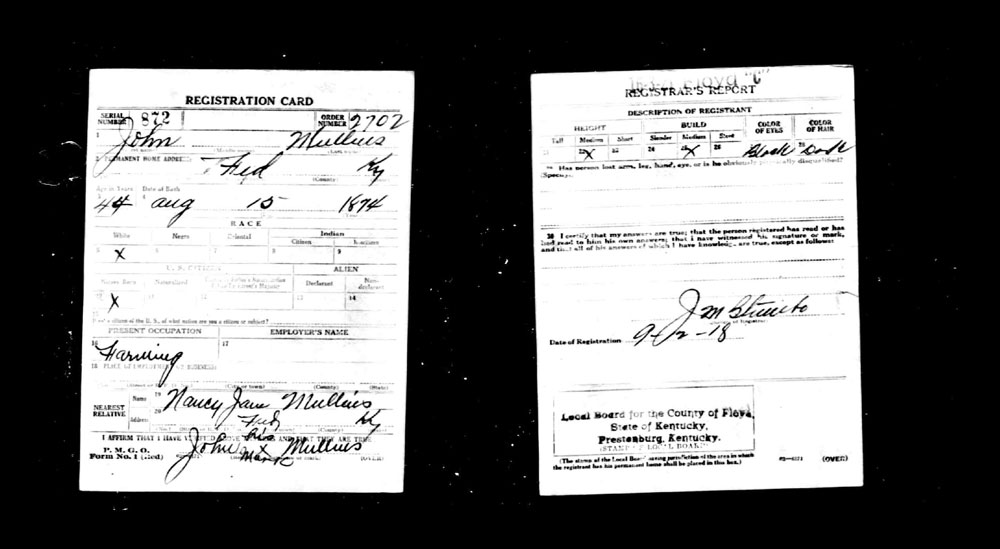 REGISTRATION CARD
SERIAL NUMBER 872 ORDER NUMBER 2702
1 John Mullins
2 PERMANENT HOME ADDRESS:
Fed Ky
(County)
Age in Years Date of Birth
44 Aug 15 1874
RACE
White Negro Oriental Indian
Citizen
5 X 6 7 8 9
U. S. CITIZEN ALIEN
Native Born Naturalized Declarant Non-declarant
10 X 11 12 13 14
15
If not a citizen of the U. S., of what nation are you a citizen or subject?
PRESENT OCCUPATION EMPLOYER'S NAME
16 Farming 17
18 PLACE OF EMPLOYMENT OR BUSINESS:
(City or town) (County) (State)
NEAREST RELATIVE Name 19 Nancy Jane Mullins
Address 20 Fed Ky
I AFFIRM THAT I HAVE VERIFIED ABOVE ANSWERS AND THAT THEY ARE TRUE
P. M. G. O.
Form No. 1 (Red)
his
John X Mullins
mark
(OVER)
REGISTRAR'S REPORT
DESCRIPTION OF REGISTRANT
HEIGHT BUILD COLOR OF EYES COLOR OF HAIR
Tall Medium Short Slender Medium Stout
21 22 X 23 24 25 X 26 27 Black 28 Dark
29 Has person lost arm, leg, hand, eye, or is he obviously physically disqualified?
(Specify.)
30 I certify that my answers are true; that the person registered has read or has
had read to him his own answers; that I have witnessed his signature or mark,
and that all of his answers of which I have knowledge are true, except as follows:
J M Stumbo
Date of Registration 9-12-18
Local Board for the County of Floyd,
State of Kentucky,
Prestonburg, Kentucky.
(STAMP OF LOCAL BOARD)
(The stamp of the Local Board having jurisdiction of the area in which
the registrant has his permanent home shall be placed in this box.)
(OVER)